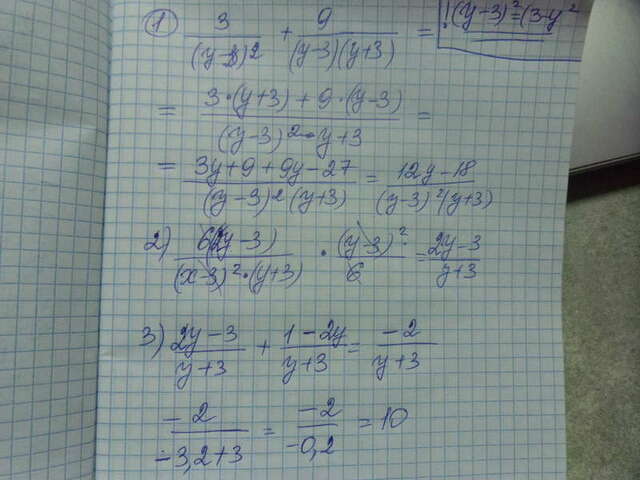 1) 3/(y-3)² + 9/((y-3)(y+3)) = !(y-3)²=(3-y²
= (3·(y+3)+9·(y-3))/((y-3)²·y+3) =
= (3y+9+9y-27)/((y-3)²(y+3)) = (12y-18)/((y-3)²(y+3))
2) 6(2y-3)/((x-3)²·(y+3)) · (y-3)²/6 = (2y-3)/(y+3)
3) (2y-3)/(y+3) + (1-2y)/(y+3) = -2/(y+3)
-2/(-3,2+3) = -2/-0,2 = 10